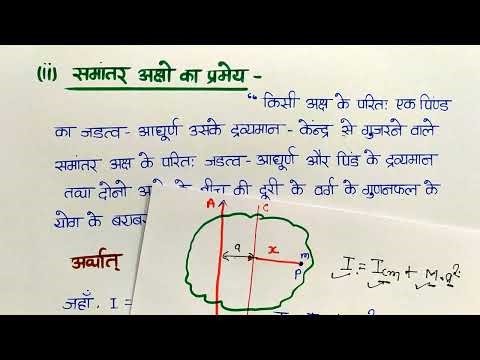 (ii) समांतर अक्षो का प्रमेय -
"किसी अक्ष के परितः एक पिण्ड
का जडत्व - आघूर्ण उसके द्रव्यमान - केन्द्र से गुजरने वाले
समांतर अक्ष के परितः जडत्व - आघूर्ण और पिंड के द्रव्यमान
तथा दोनो की दूरी के वर्ग के गुणनफल के
योग के बराबर
A C
a x m
P
I = Icm + M.a²
अर्थात्
जहाँ, I =